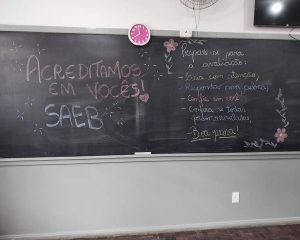 ACREDITAMOS
EM VOCÊS!
SAEB
Prepare-se para
a avaliação:
- Leia com atenção;
- Responda com calma;
- Confie em você
- Confira se todas
foram
- Boa prova!